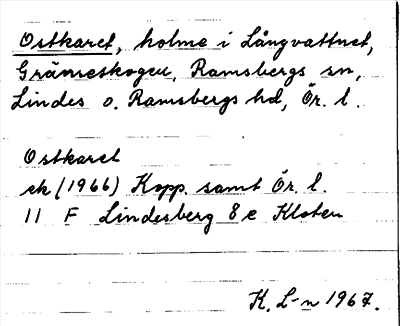 Ostkaret, holme i Långvattnet,
Gränsskogen, Ramsbergs sn,
Lindes o. Ramsbergs hd, Ör. l.
Ostkaret
ek (1966) Kopp. samt Ör. l.
11 F Lindesberg 8 e Kloten
K. L-n 1967.